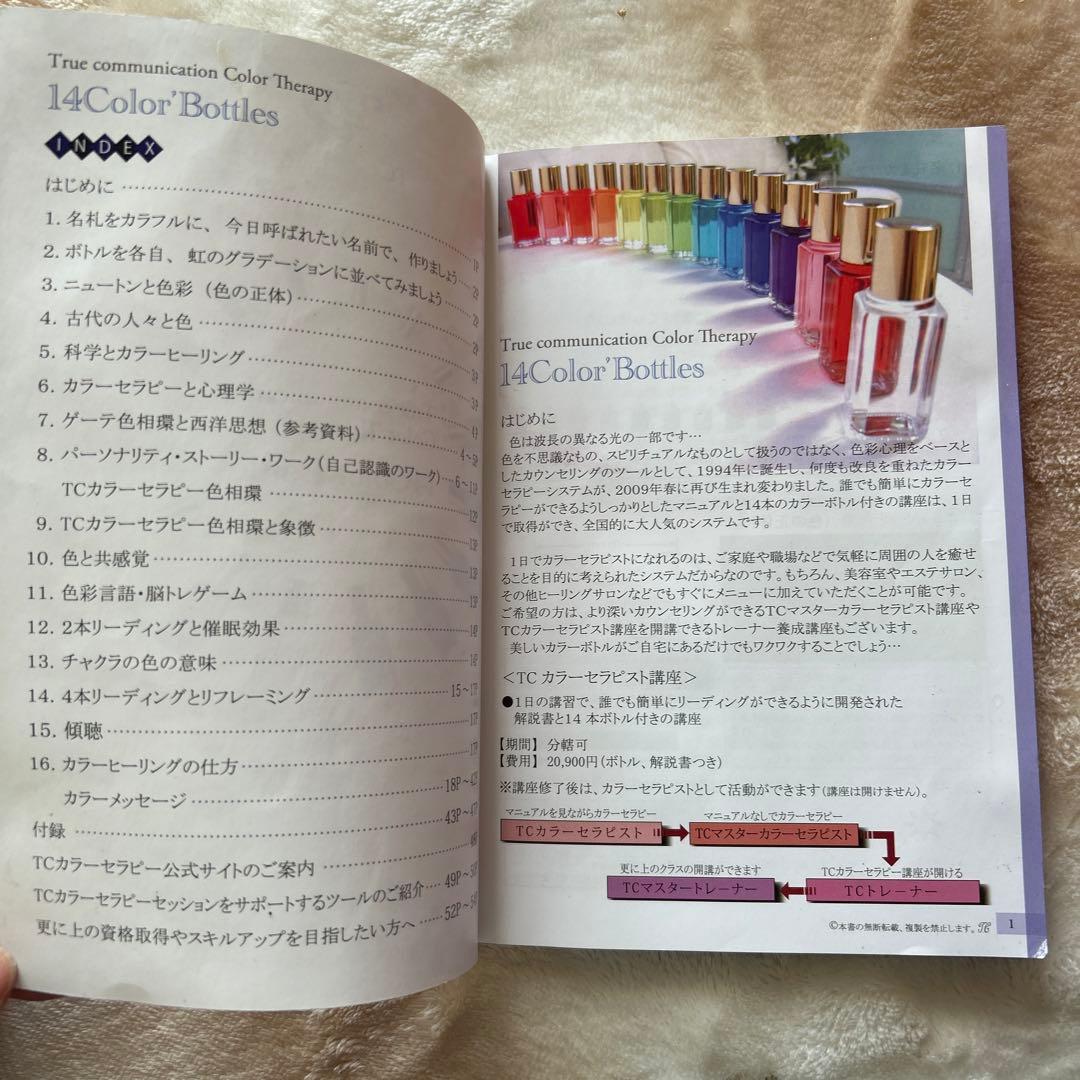 True communication Color Therapy
14Color'Bottles
INDEX
はじめに ……1P
1. 名札をカラフルに、今日呼ばれたい名前で、作りましょう ……2P
2. ボトルを各自、虹のグラデーションに並べてみましょう ……2P
3. ニュートンと色彩（色の正体） ……2P
4. 古代の人々と色 ……3P
5. 科学とカラーヒーリング ……3P
6. カラーセラピーと心理学 ……4P
7. ゲーテ色相環と西洋思想（参考資料） ……4～5P
8. パーソナリティ・ストーリー・ワーク（自己認識のワーク） …6～11P
TCカラーセラピー色相環 ……12P
9. TCカラーセラピー色相環と象徴 ……13P
10. 色と共感覚 ……13P
11. 色彩言語・脳トレゲーム ……13P
12. 2本リーディングと催眠効果 ……14P
13. チャクラの色の意味 ……14P
14. 4本リーディングとリフレーミング ……15～17P
15. 傾聴 ……17P
16. カラーヒーリングの仕方 ……17P
カラーメッセージ ……18P～42P
付録 ……43P～47P
TCカラーセラピー公式サイトのご案内 ……48P
TCカラーセラピーセッションをサポートするツールのご紹介 …49P～
更に上の資格取得やスキルアップを目指したい方へ ……52P～
True communication Color Therapy
14Color'Bottles
はじめに
色は波長の異なる光の一部です…
色を不思議なもの、スピリチュアルなものとして扱うのではなく、色彩心理をベースと
したカウンセリングのツールとして、1994年に誕生し、何度も改良を重ねたカラー
セラピーシステムが、2009年春に再び生まれ変わりました。誰でも簡単にカラーセ
ラピーができるようしっかりとしたマニュアルと14本のカラーボトル付きの講座は、1日
で取得ができ、全国的に大人気のシステムです。
1日でカラーセラピストになれるのは、ご家庭や職場などで気軽に周囲の人を癒せ
ることを目的に考えられたシステムだからなのです。もちろん、美容室やエステサロン、
その他ヒーリングサロンなどでもすぐにメニューに加えていただくことが可能です。
ご希望の方は、より深いカウンセリングができるTCマスターカラーセラピスト講座や
TCカラーセラピスト講座を開講できるトレーナー養成講座もございます。
美しいカラーボトルがご自宅にあるだけでもワクワクすることでしょう…
＜TC カラーセラピスト講座＞
●1日の講習で、誰でも簡単にリーディングができるように開発された
解説書と14 本ボトル付きの講座
【期間】 分轄可
【費用】 20,900円（ボトル、解説書つき）
※講座修了後は、カラーセラピストとして活動ができます（講座は開けません）。
マニュアルを見ながらカラーセラピー
マニュアルなしでカラーセラピー
TCカラーセラピスト
TCマスターカラーセラピスト
更に上のクラスの開講ができます
TCカラーセラピー講座が開ける
TCマスタートレーナー
TCトレーナー
©本書の無断転載、複製を禁止します。TC
1